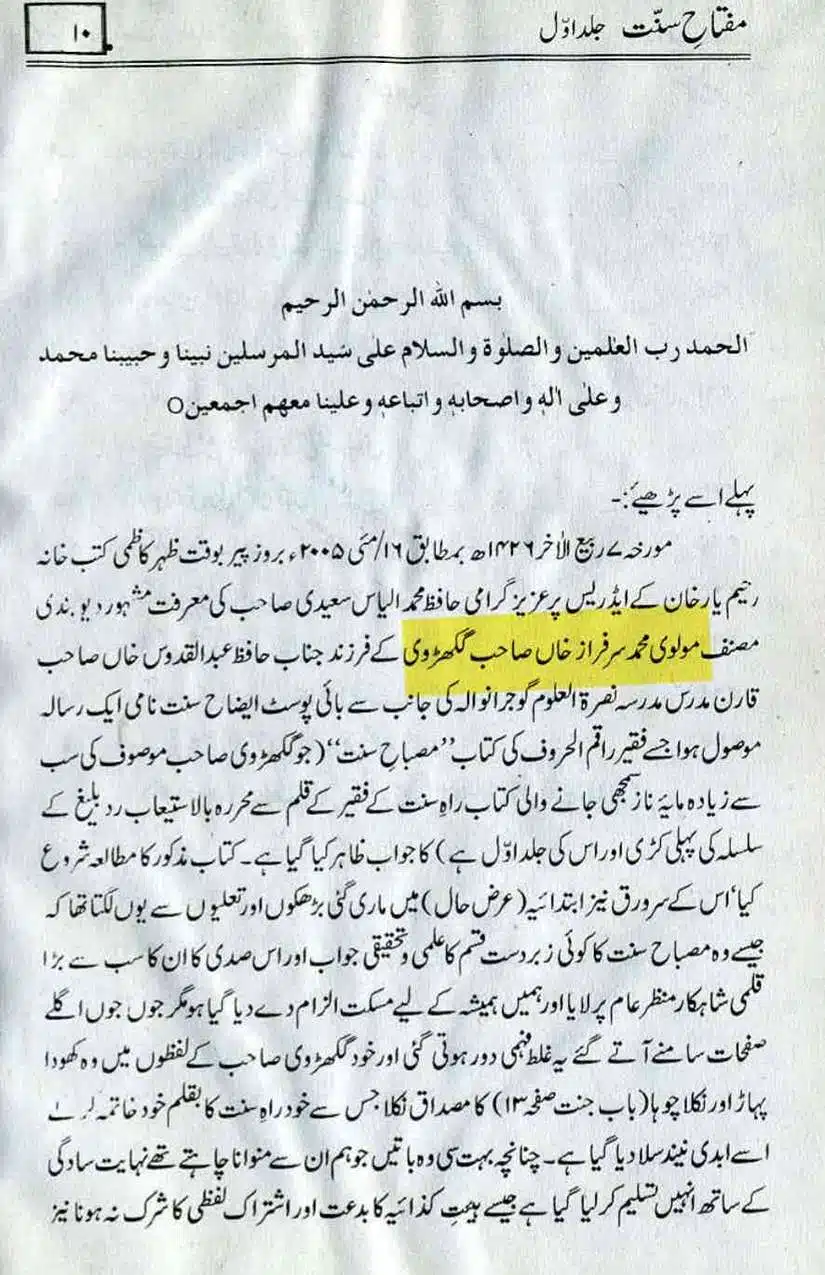 مفتاحِ سنّت جلد اوّل
۱۰
بسم الله الرحمٰن الرحیم
الحمد رب العٰلمین والصلوٰة والسلام علی سید المرسلین نبینا وحبیبنا محمد
وعلی اٰلهٖ واصحابهٖ واتباعهٖ وعلینا معهم اجمعین○
پہلے اسے پڑھیئے:-
مورخہ ۷ ربیع الاٰخر ۱۴۲۶ھ بمطابق ۱۶/مئی ۲۰۰۵ء بروز پیر بوقت ظہر کاظمی کتب خانہ
رحیم یار خان کے ایڈریس پر عزیز گرامی حافظ محمد الیاس سعیدی صاحب کی معرفت مشہور دیوبندی
مصنف مولوی محمد سرفراز خاں صاحب گکھڑوی کے فرزند جناب حافظ عبدالقدوس خاں صاحب
قارن مدرس مدرسہ نصرة العلوم گوجرانوالہ کی جانب سے بائی پوسٹ ایضاح سنت نامی ایک رسالہ
موصول ہوا جسے فقیر راقم الحروف کی کتاب ’’مصباحِ سنت‘‘ (جو گکھڑوی صاحب موصوف کی سب
سے زیادہ مایۂ ناز سمجھی جانے والی کتاب راہِ سنت کے فقیر کے قلم سے محررہ بالاستیعاب رد بلیغ کے
سلسلہ کی پہلی کڑی اور اس کی جلد اوّل ہے) کا جواب ظاہر کیا گیا ہے۔ کتاب مذکور کا مطالعہ شروع
کیا‘ اس کے سرورق نیز ابتدائیہ (عرض حال) میں ماری گئی بڑھکوں اور تعلیوں سے یوں لگتا تھا کہ
جیسے وہ مصباح سنت کا کوئی زبردست قسم کا علمی و تحقیقی جواب اور اس صدی کا ان کا سب سے بڑا
قلمی شاہکار منظر عام پر لایا اور ہمیں ہمیشہ کے لیے مسکت الزام دے دیا گیا ہو مگر جوں جوں اگلے
صفحات سامنے آتے گئے یہ غلط فہمی دور ہوتی گئی اور خود گکھڑوی صاحب کے لفظوں میں وہ کھودا
پہاڑ اور نکلا چوہا (باب جنت صفحہ ۱۳) کا مصداق نکلا جس سے خود راہِ سنت کا بقلم خود خاتمہ کر کے
اسے ابدی نیند سلا دیا گیا ہے۔ چنانچہ بہت سی وہ باتیں جو ہم ان سے منوانا چاہتے تھے نہایت سادگی
کے ساتھ انہیں تسلیم کر لیا گیا ہے جیسے ہیئتِ کذائیہ کا بدعت اور اشتراک لفظی کا شرک نہ ہونا نیز